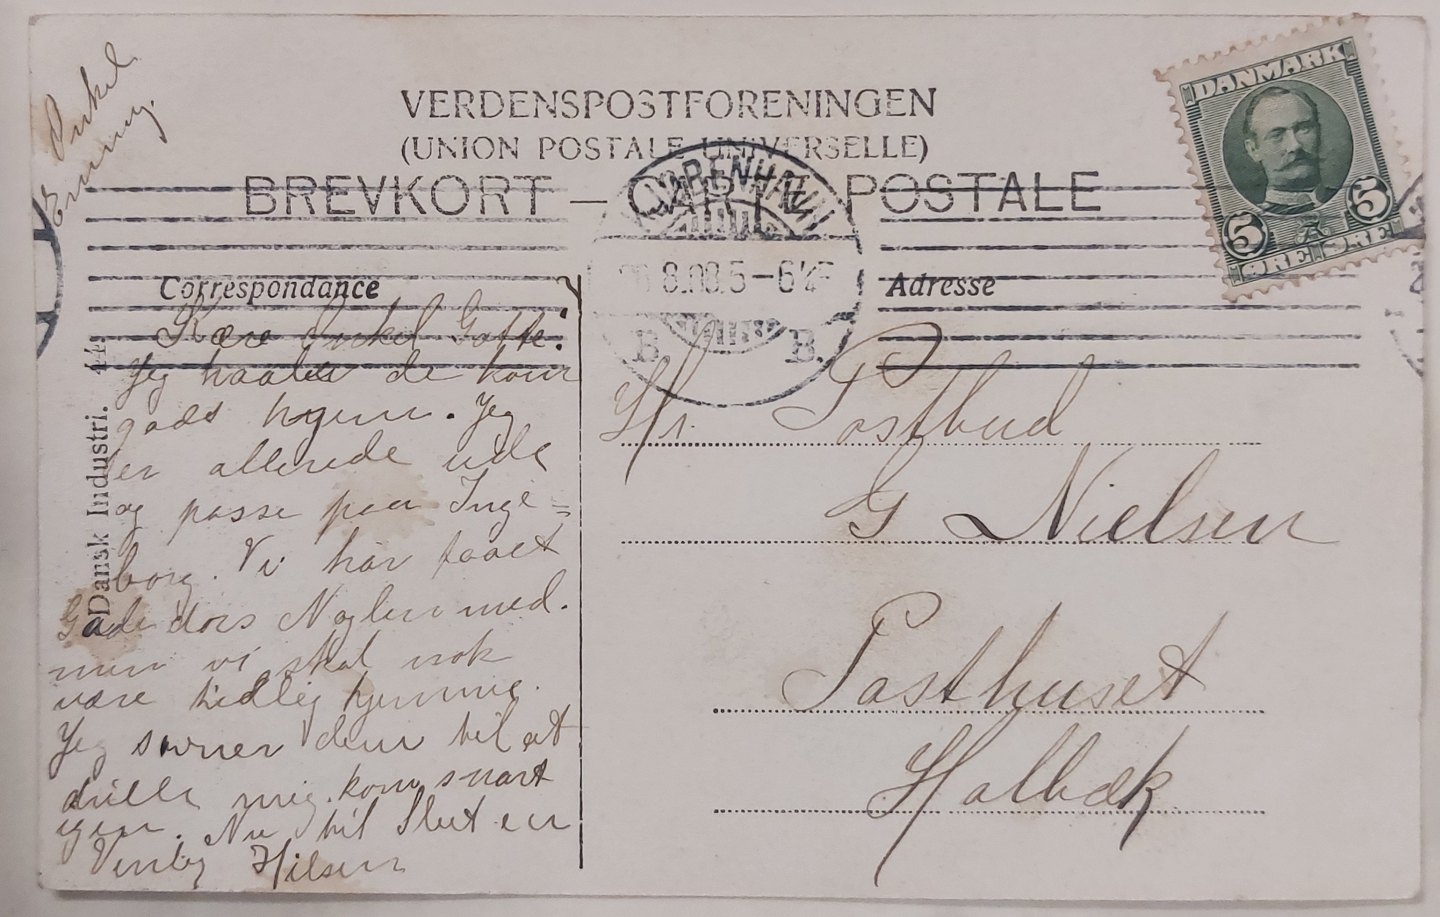 VERDENSPOSTFORENINGEN
(UNION POSTALE UNIVERSELLE)
BREVKORT – CARTE POSTALE
Onkel
Emmery.
DANMARK
5 5
ØRE ØRE
KJØBENHAVN
8.08.5-6½E
B. B.
Correspondance
Kære Onkel Gotte.
Jeg haaber de kom
godt hjem. Jeg
er allerede ude
og passe paa Inge=
borg. Vi har taaet
Gadedørs Nøglen med.
men vi skal nok
være tidlig hjemme.
Jeg savner dem til at
drille mig. kom snart
igen. Nu til Slut en
Venlig Hilsen
Dansk Industri. 449
Adresse
Hr. Postbud
G Nielsen
Posthuset
Holbæk